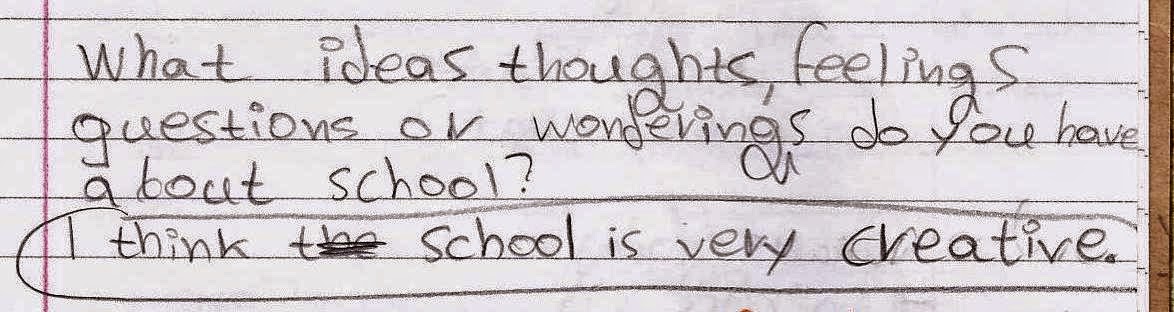 What ideas thoughts, feelings
questions or wonderings do you have
about school?
I think the school is very creative.